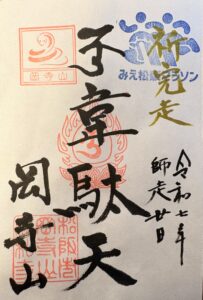 祈完走
みえ松阪マラソン
令和七年
師走廿日
子韋駄天
岡寺山
岡寺山